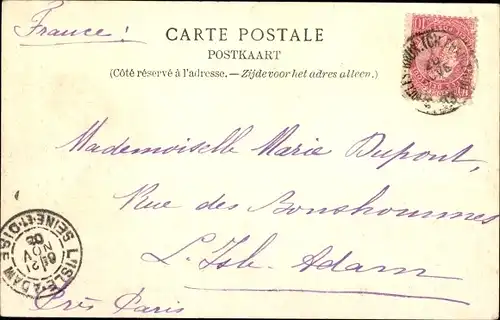 France :
CARTE POSTALE
POSTKAART
(Côté réservé à l'adresse. — Zijde voor het adres alleen.)
Mademoiselle Marie Dupont,
Rue des Bonshommes
L'Isle-Adam
Près Paris
L'ISLE-ADAM
SEINE-ET-OISE
NOV
10